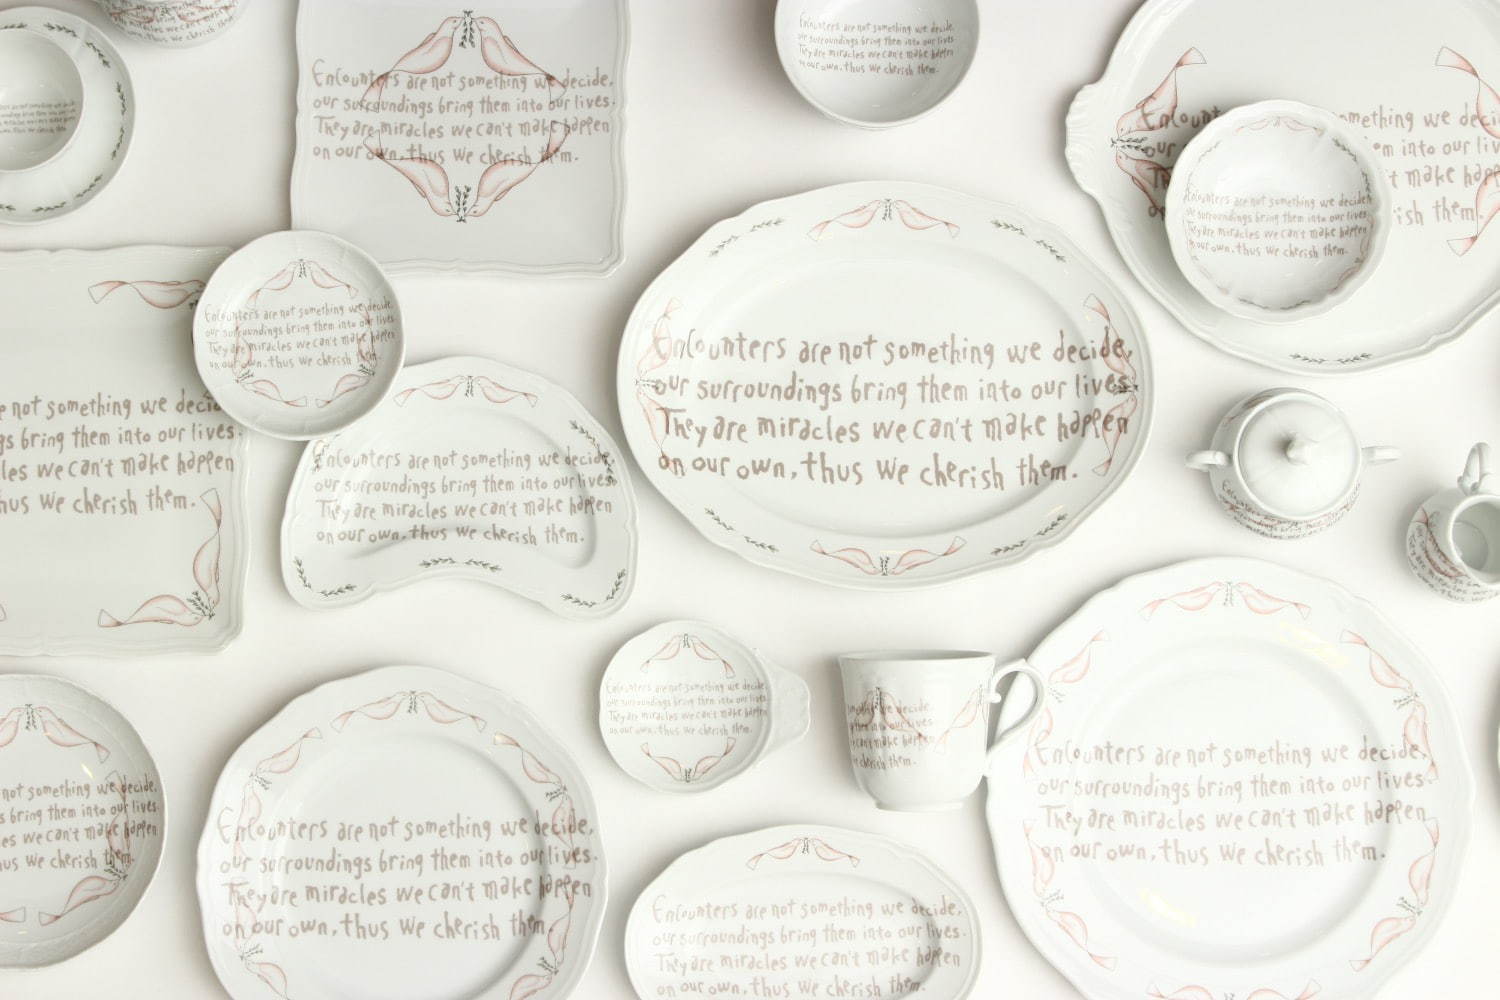 Encounters are not something we decide,
our surroundings bring them into our lives.
They are miracles we can't make happen
on our own, thus we cherish them.
Encounters are not something we decide,
our surroundings bring them into our lives
They are miracles we can't make happen
on our own, thus we cherish them.
mething we decid
em into our liv
't make happ
ish them.
Encounters are not something we decide,
our surroundings bring them into our lives
They are miracles we can't make happen
on our own, thus we cherish them.
Encounters are not something we decide,
our surroundings bring them into our lives
They are miracles we can't make happen
on our own, thus we cherish them.
Encounters are not something we decide,
our surroundings bring them into our lives.
They are miracles we can't make happen
on our own, thus we cherish them.
e not something we decid
gs bring them into our lives.
les we can't make happen
hus we cherish them.
Encounters are not something we decide,
our surroundings bring them into our lives.
They are miracles we can't make happen
on our own, thus we cherish them.
Encounters are not something we decide,
our surroundings bring them into our lives.
They are miracles we can't make happen
on our own, thus we cherish them.
we decide,
into our lives.
can't make happen
cherish them.
Encounters are not something we decide,
our surroundings bring them into our lives.
They are miracles we can't make happen
on our own, thus we cherish them.
not something we decide,
s bring them into our lives.
les we can't make happen
us we cherish them.
Encounters are not something we decide,
our surroundings bring them into our lives.
They are miracles we can't make happen
on our own, thus we cherish them.
Encounters are not something we decide,
our surroundings bring them into our lives.
They are miracles we can't make happen
on our own, thus we cherish them.